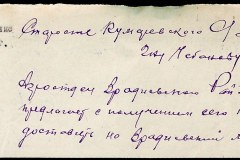 Старосте Кумаевского С/
Гну Чебанову
Агроотдел Врадиевской Рай
предлагает с получением сего
доставить на Врадиевский